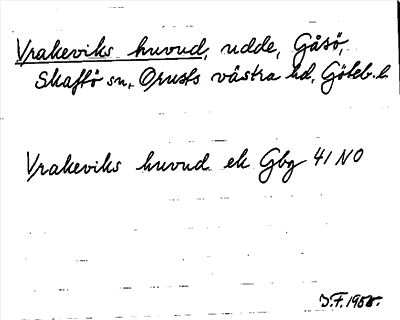 Vrakeviks huvud, udde, Gåsö,
Skaftö sn, Orusts västra hd, Göteb. l.
Vrakeviks huvud ek Gbg 41 NO
J.F. 1958.